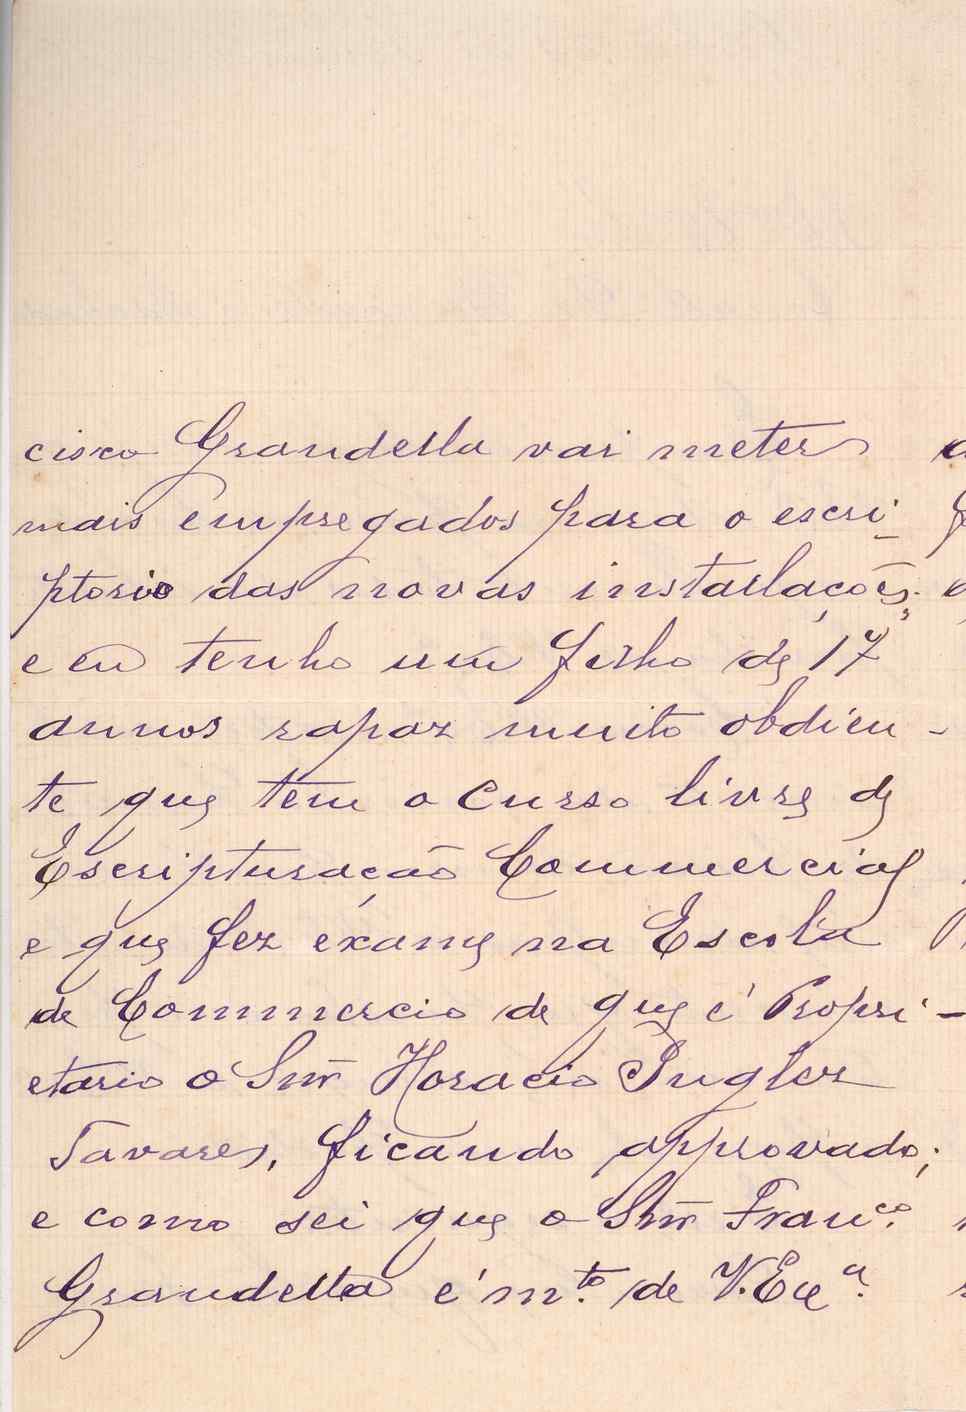 cisco Grandella vai meter
mais empregados para o escri-
ptorio das novas installações;
e eu tenho um filho de 17
annos rapaz muito obdien-
te que tem o Curso livre de
Escripturação Commercial
e que fez exame na Escola
de Commercio de que é Propri-
etario o Snr Horacio Inglez
Tavares, ficando approvado;
e como sei que o Snr Franco.
Grandella é mto. de V. Exa.